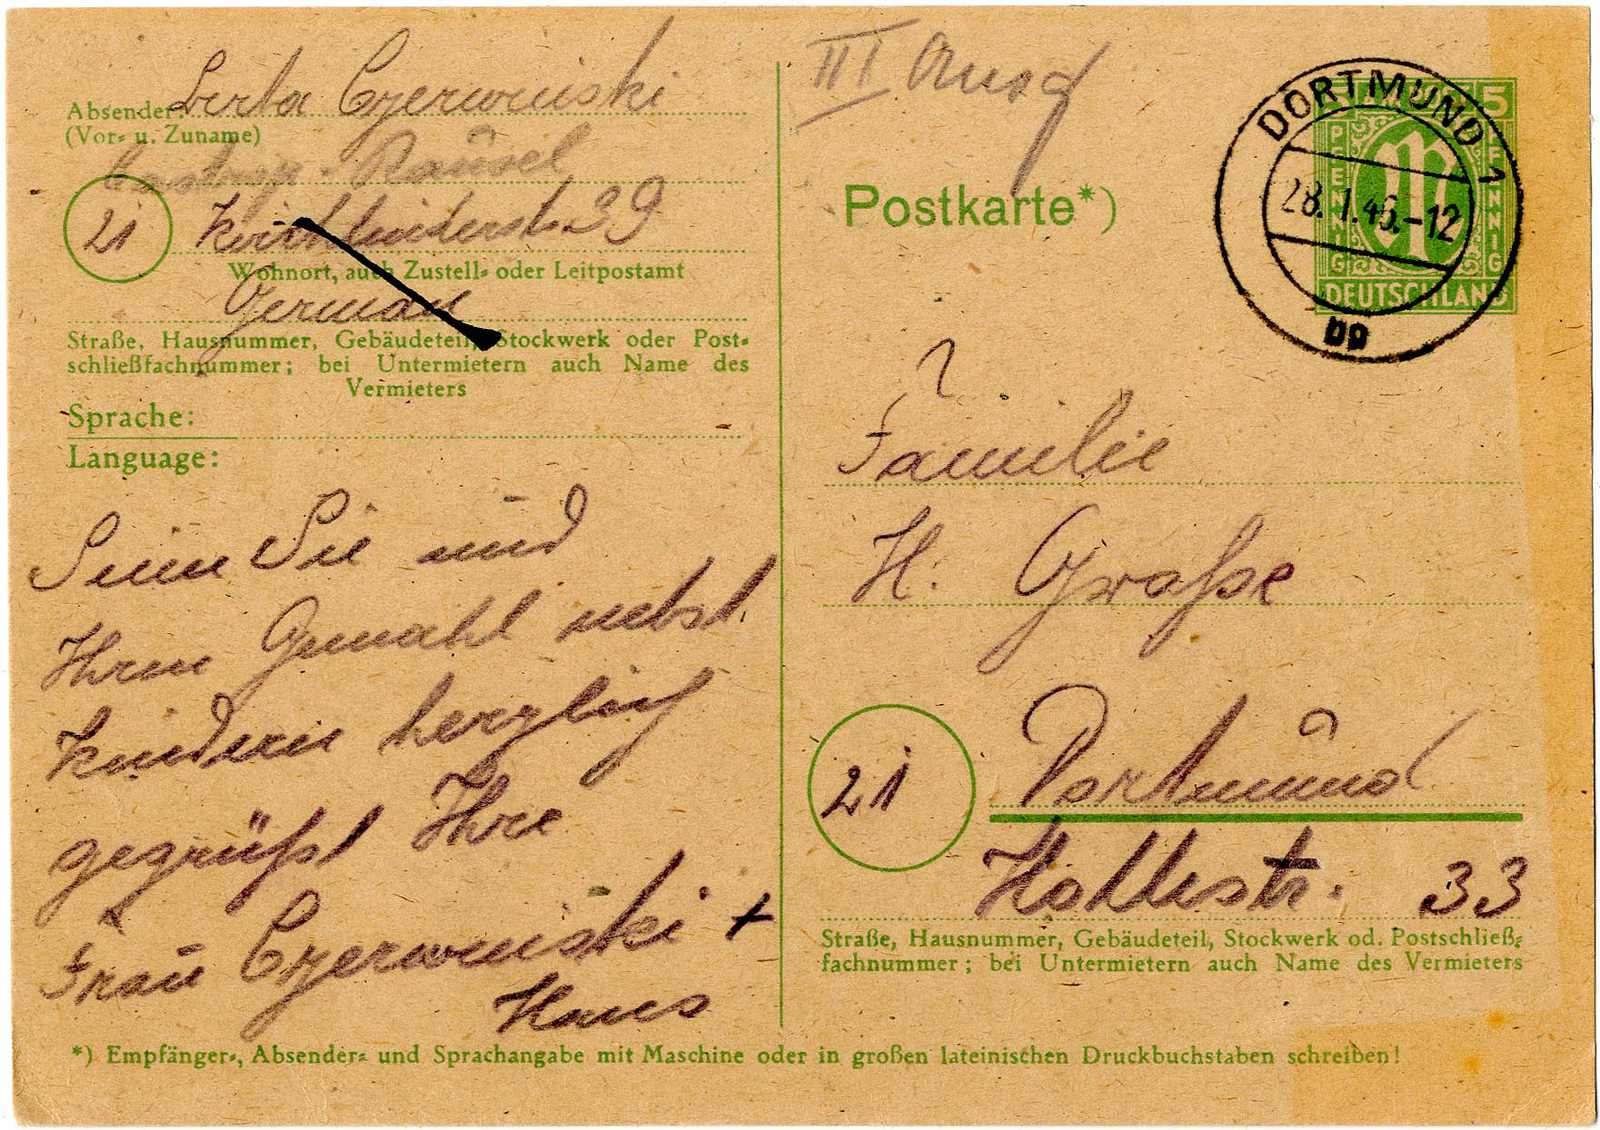 Absender: Czerwinski
(Vor- u. Zuname)
Castrop-Rauxel
21 39
Wohnort, auch Zustell- oder Leitpostamt
German
Straße, Hausnummer, Gebäudeteil, Stockwerk oder Post-
schließfachnummer; bei Untermietern auch Name des
Vermieters
Sprache:
Language:
Seien Sie und
Ihren Gemahl nebst
Kindern herzlich
gegrüßt Ihre
Frau Czerwinski +
Hans
III Ausf
Postkarte*)
DORTMUND 1
28.1.46.-12
bp
5
PFENNIG
PFENNIG
DEUTSCHLAND
Familie
H. Graße
21 Dortmund
33
Straße, Hausnummer, Gebäudeteil, Stockwerk od. Postschließ-
fachnummer; bei Untermietern auch Name des Vermieters
*) Empfänger-, Absender- und Sprachangabe mit Maschine oder in großen lateinischen Druckbuchstaben schreiben!